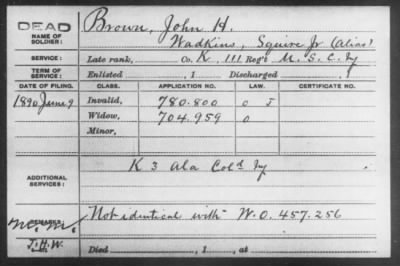 DEAD
NAME OF SOLDIER:
Brown, John H.
Wadkins, Squire Jr (Alias)
SERVICE:
Late rank, Co. K, 111 Reg't U. S. C. Iy
TERM OF SERVICE:
Enlisted , 1 Discharged , 1
DATE OF FILING. CLASS. APPLICATION NO. LAW. CERTIFICATE NO.
1890 June 9 Invalid, 780.800 O J
Widow, 704.959 O
Minor,
ADDITIONAL SERVICES:
K 3 Ala Cold Iy
REMARKS:
Not identical with W.O. 457.256
J.H.W.
Died , 1 , at